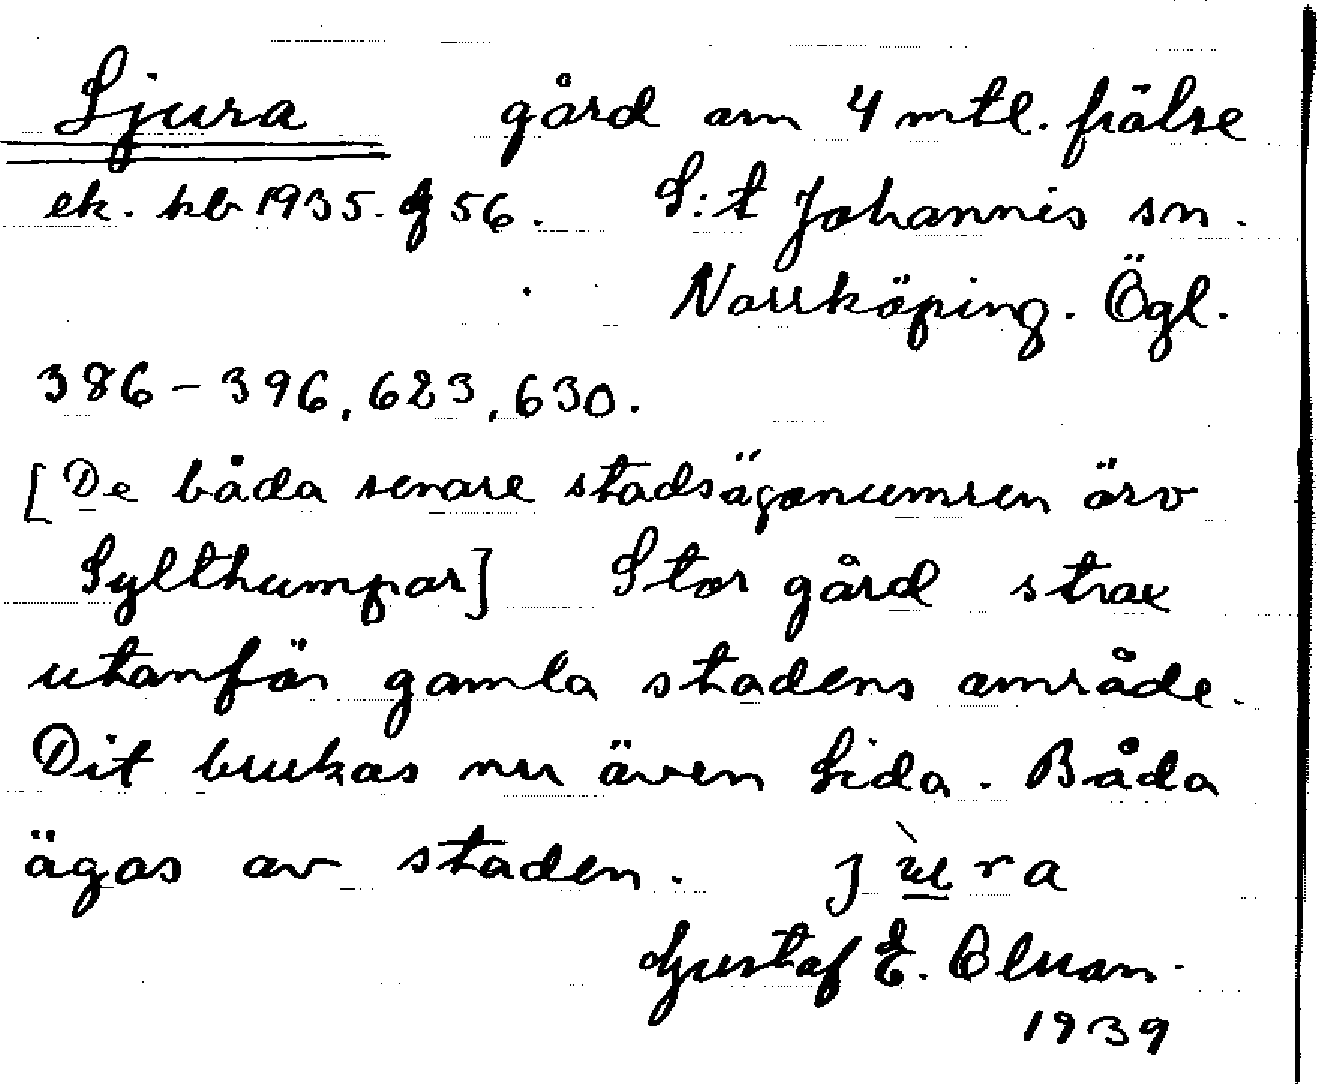 Ljura gård om 4 mtl. frälse
ek. kb 1935. g 56. S:t Johannis sn.
Norrköping. Ögl.
386-396, 623, 630.
[De båda senare stadsägonumren äro
Sylthumpar] Stor gård strax
utanför gamla stadens område.
Dit brukas nu även Lida. Båda
ägas av staden. jùra
Gustaf E. Olsson.
1939